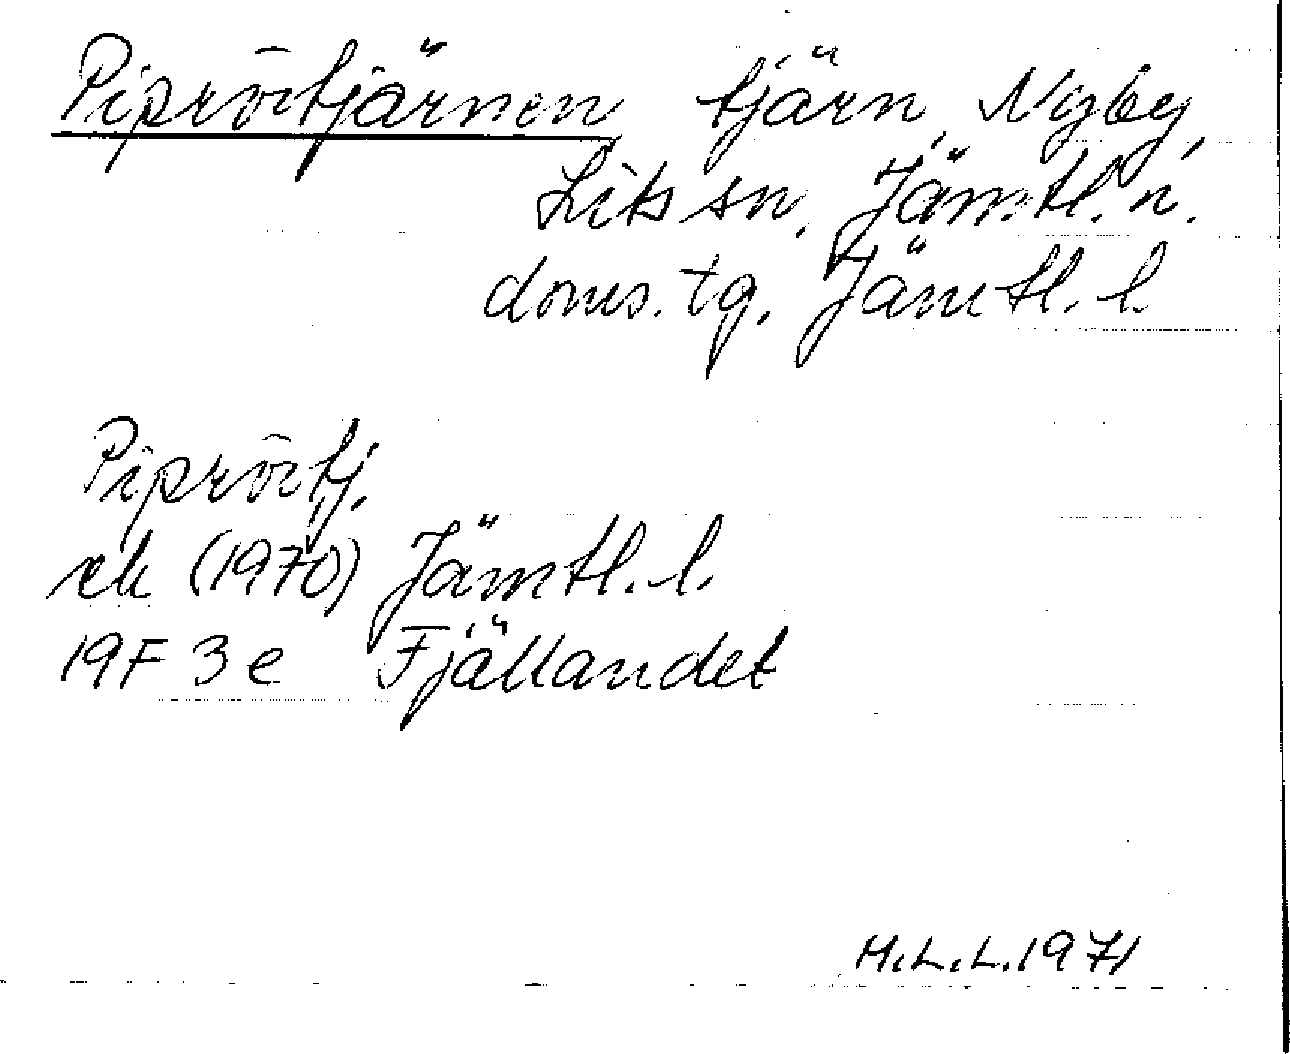 Piprötjärnen tjärn, Nyby,
Lits sn, Jämtl. n.
doms. tg, Jämtl. l.
Piprötj.
rek (1970) Jämtl. l.
19F 3e Fjällandet
H.L.L. 1971